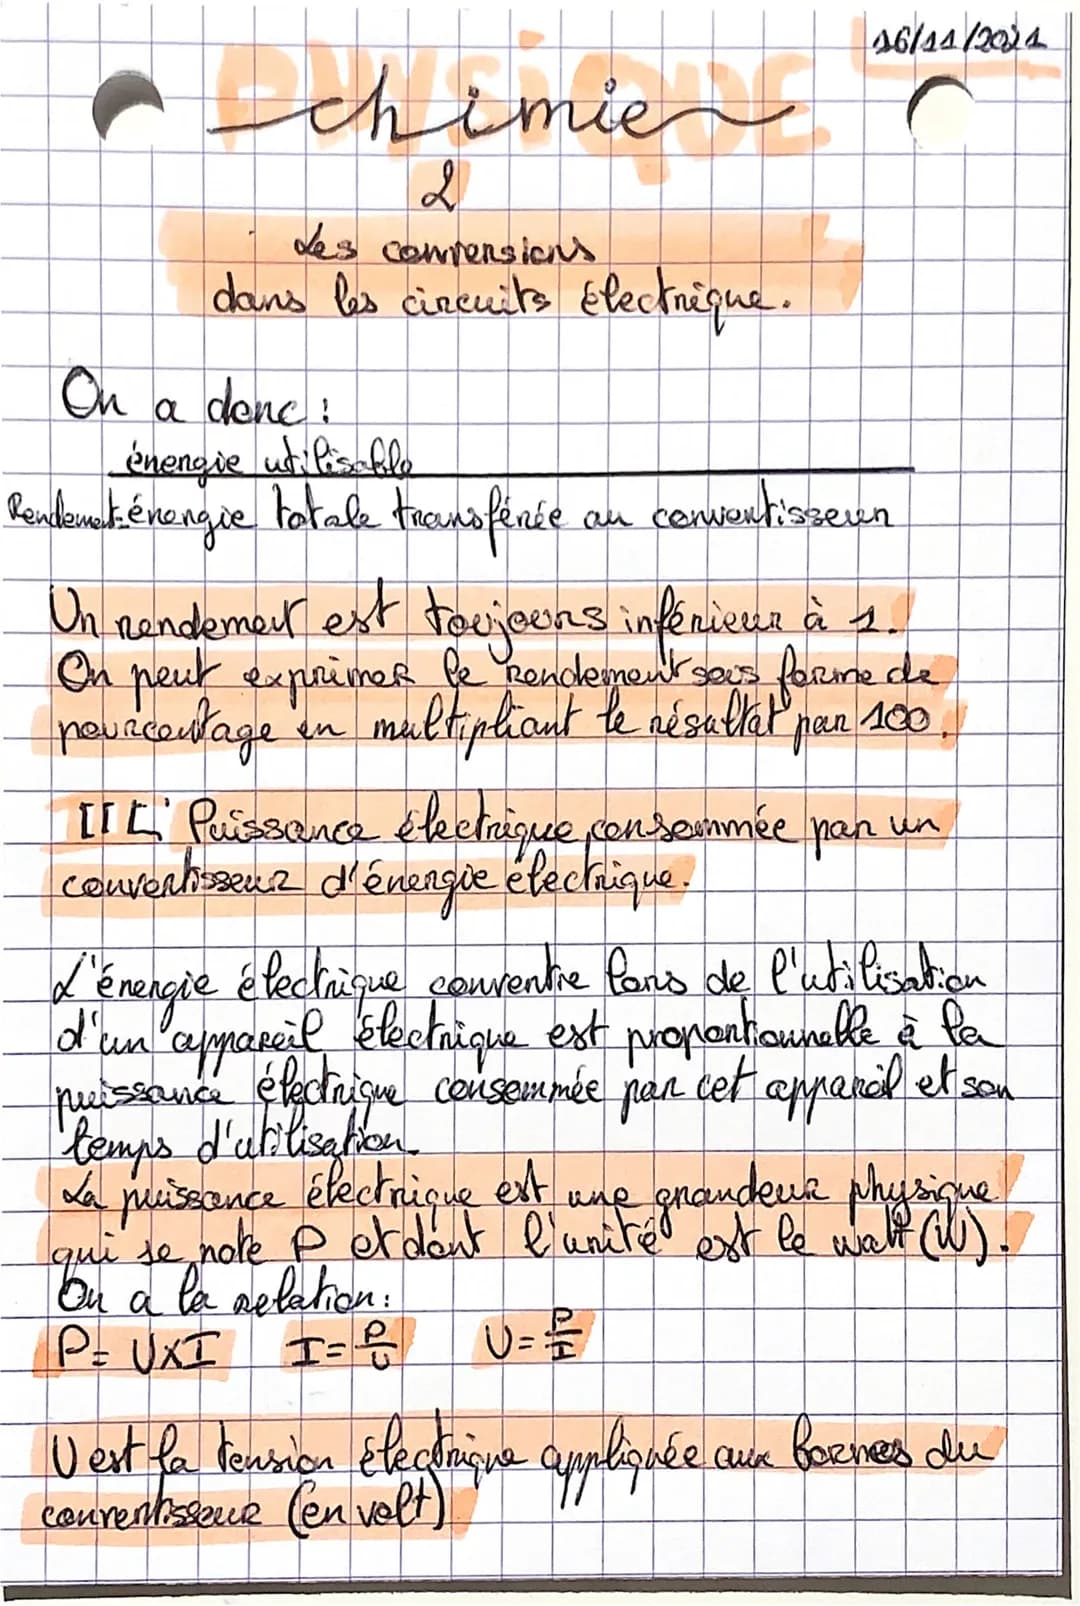 16/11/2021
PHYSIQUE
chimie
2
Les conversions
dans les circuits électrique.
On a donc :
énergie utilisable
Rendement = énergie totale transférée au convertisseur
Un rendement est toujours inférieur à 1.
On peut exprimer le rendement sous forme de
pourcentage en multipliant le résultat par 100.
III Puissance électrique consommée par un
convertisseur d'énergie électrique.
L'énergie électrique conventre lors de l'utilisation
d'un appareil électrique est proportionnelle à la
puissance électrique consommée par cet appareil et son
temps d'utilisation.
La puissance électrique est une grandeur physique
qui se note P et dont l'unité est le watt (W).
On a la relation :
P = U×I I = P/U U = P/I
U est la tension électrique appliquée aux bornes du
convertisseur (en volt)